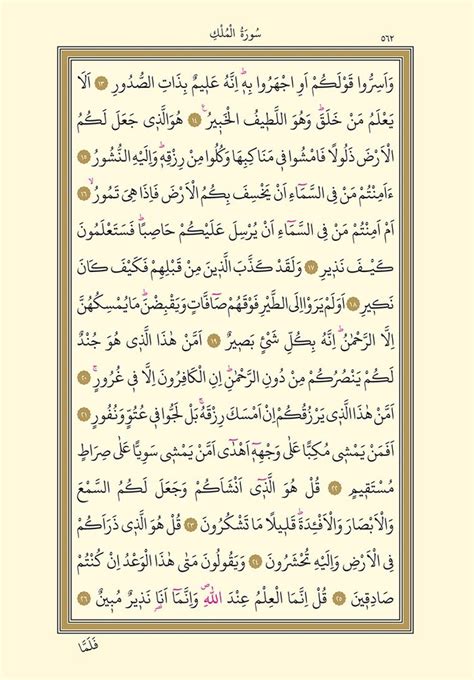 سُورَةُ الْمُلْكِ ٥٦٢
وَاَسِرُّوا قَوْلَكُمْ اَوِ اجْهَرُوا بِهِۜ اِنَّهُ عَلِيمٌ بِذَاتِ الصُّدُورِ ١٣ اَلَا
يَعْلَمُ مَنْ خَلَقَۜ وَهُوَ اللَّطِيفُ الْخَبِيرُ۟ ١٤ هُوَ الَّذِي جَعَلَ لَكُمُ
الْاَرْضَ ذَلُولًا فَامْشُوا فِي مَنَاكِبِهَا وَكُلُوا مِنْ رِزْقِهِۜ وَاِلَيْهِ النُّشُورُ ١٥
ءَاَمِنْتُمْ مَنْ فِي السَّمَٓاءِ اَنْ يَخْسِفَ بِكُمُ الْاَرْضَ فَاِذَا هِيَ تَمُورُۙ ١٦
اَمْ اَمِنْتُمْ مَنْ فِي السَّمَٓاءِ اَنْ يُرْسِلَ عَلَيْكُمْ حَاصِبًاۜ فَسَتَعْلَمُونَ
كَيْفَ نَذِيرِ ١٧ وَلَقَدْ كَذَّبَ الَّذِينَ مِنْ قَبْلِهِمْ فَكَيْفَ كَانَ
نَكِيرِ ١٨ اَوَلَمْ يَرَوْا اِلَى الطَّيْرِ فَوْقَهُمْ صَٓافَّاتٍ وَيَقْبِضْنَۜ مَا يُمْسِكُهُنَّ
اِلَّا الرَّحْمٰنُۜ اِنَّهُ بِكُلِّ شَيْءٍ بَصِيرٌ ١٩ اَمَّنْ هٰذَا الَّذِي هُوَ جُنْدٌ
لَكُمْ يَنْصُرُكُمْ مِنْ دُونِ الرَّحْمٰنِۜ اِنِ الْكَافِرُونَ اِلَّا فِي غُرُورٍۚ ٢٠
اَمَّنْ هٰذَا الَّذِي يَرْزُقُكُمْ اِنْ اَمْسَكَ رِزْقَهُۚ بَلْ لَجُّوا فِي عُتُوٍّ وَنُفُورٍ ٢١
اَفَمَنْ يَمْشِي مُكِبًّا عَلٰى وَجْهِهِٓ اَهْدٰٓى اَمَّنْ يَمْشِي سَوِيًّا عَلٰى صِرَاطٍ
مُسْتَقِيمٍ ٢٢ قُلْ هُوَ الَّذِٓي اَنْشَاَكُمْ وَجَعَلَ لَكُمُ السَّمْعَ
وَالْاَبْصَارَ وَالْاَفْـِٔدَةَۜ قَلِيلًا مَا تَشْكُرُونَ ٢٣ قُلْ هُوَ الَّذِي ذَرَاَكُمْ
فِي الْاَرْضِ وَاِلَيْهِ تُحْشَرُونَ ٢٤ وَيَقُولُونَ مَتٰى هٰذَا الْوَعْدُ اِنْ كُنْتُمْ
صَادِقِينَ ٢٥ قُلْ اِنَّمَا الْعِلْمُ عِنْدَ اللّٰهِۖ وَاِنَّمَٓا اَنَا۬ نَذِيرٌ مُبِينٌ ٢٦
فَلَمَّا